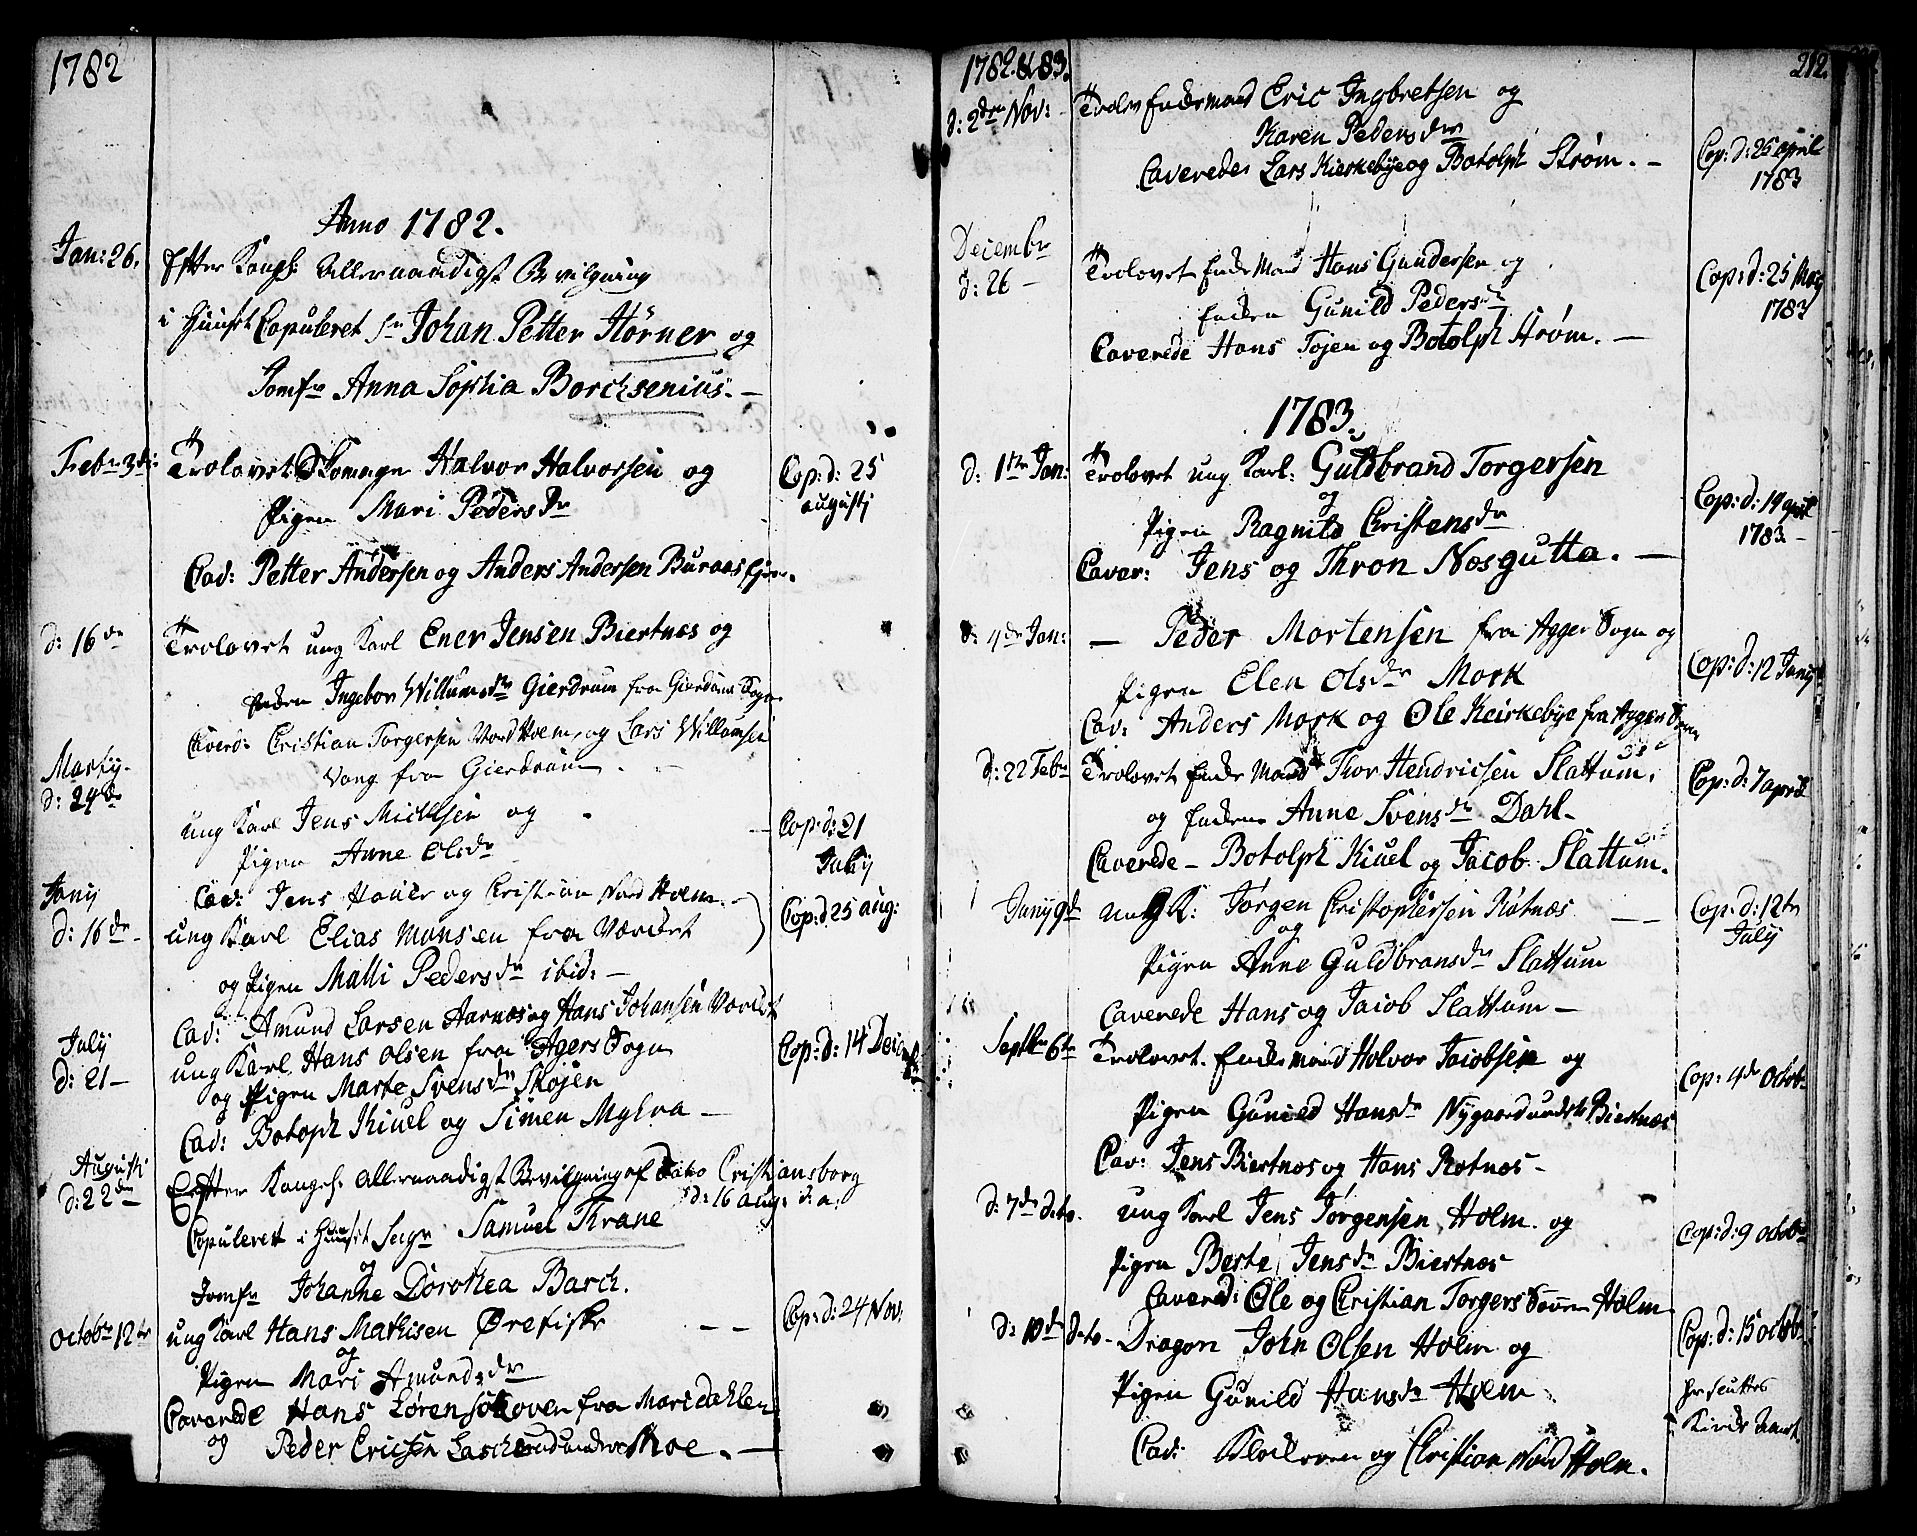 1782
Anno 1782.
Jan: 26. Efter Kongl: Allernaadigst Bevilgning
i Huuset Copuleret Sr Johan Petter Hörner og
Jomfr Anna Sophia Borchsenius. —
Febr: 3die Trolovet Skomager Halvor Halvorsen og
Pigen Mari Pedersdr
Cop: d: 25 augustj
Cav: Petter Andersen og Anders Andersen Buraas
d: 16de Trolovet ung Karl Ener Jensen Biertnæs og
Enken Ingebor Willumsdr Gierdrum fra Gierdrum Sogn
Caverd: Cristian Torgersen Nord Holm, og Lars Willumsen
Vong fra Gierdrum. —
Martij d: 24de
ung Karl Jens Michelsen og
Pigen Anne Olsdr
Cop: d: 21 July
Cav: Jens Hauer og Christian Nord Holm. —
Junij d: 16de ung Karl Elias Monsen fra Værdret
og Pigen Malli Pedersdr ibid: —
Cop: d 25 aug:
Cav: Amund Larsen Aarnæs og Hans Johansen Værdret
July d: 21 — ung Karl Hans Olsen fra Agers Sogn
og Pigen Marte Svensdr Skøjen
Cop: d: 14 Decemb
Cav: Botoph Kiuel og Simen Mylra —
Augusti d: 22de Efter Kongel: Allernaadigst Bevilgning af Dato Cristiansborg
d: 16 aug: d: a:
Copuleret i Huuset Segr Samuel Thrane
og
Jomfr Johanne Dorothea Barch.
Octobr 12te ung Karl Hans Mathisen Ørefiske — —
og
Pigen Mari Amundsdr
Cop: d: 24 Nov:
Caverede Hans Lørensøkoven fra Maridahlen
og Peder Ericsen Lascherud under Moe. —
1782. & 83.
212.
d: 2den Nov: Trolov Enkemand Eric Ingbretsen og
Karen Pedersdr
Cop: d: 25 april 1783
Caveredes Lars Kierkebye og Botolph Strøm. —
Decembr d: 26 — Trolovet Enke Mand Hans Gundersen og
Enken Gunild Pedersdr
Cop: d: 25 May 1783
Caverede Hans Tojen og Botolph Strøm. —
1783.
d: 1te Jan: Trolovet ung Karl: Guldbrand Torgersen
og
Pigen Ragnild Christensdr
Cop: d: 19 april 1783 —
Caver: Jens og Thron Nosgutta. —
d: 4de Jan: — Peder Mortensen fra Agger Sogn og
Pigen Elen Olsdr Mork
Cop: d: 12 Junij
Cav: Anders Mork og Ole Keirkebye fra Agger Sogn
d: 22 Febr Trolovet Enke Mand Thor Hendricsen Slattum,
og Enken Anne Svensdr Dahl —
Cop: d: 7 april
Caverede — Botolph Kiuel og Jacob Slattum.
Junij 9d ung K: Jørgen Christophersen Røtnæs — —
og
Pigen Anne Guldbransdr Slattum
Cop: d: 12te July
Caverede Hans og Jacob Slattum —
Septbr 6te Trolovet Enkemand Holvor Jacobsen og
Pigen Gunild Hansdr Nygaard under Biertnæs
Cop: 4de Octob:
Cav: Jens Biertnæs og Hans Røtnæs —
d: 7de dito. ung Karl Jens Jørgensen Holm og
Pigen Berte Jensdr Biertnæs
Cop: d: 9 octobr
Cavered: Ole og Christian Torgers Sønner Holm
d: 10de dito — Dragon John Olsen Holm og
Pigen Gunild Hansdr Holm
Cop: d: 15 octobr:
Cav: Klockeren og Christian Nord Holm.